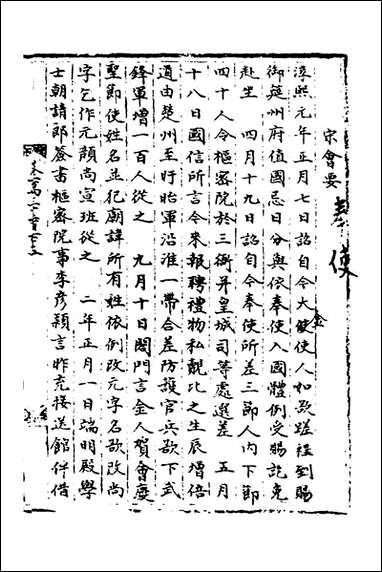 宋會要
奉使
淳熙元年正月七日詔自今大金使使人如欲蹉程到賜
御筵州府值國忌日分與依奉使入國體例受賜訖免
赴坐 四月十九日詔自今奉使所差三節人內下節
四十人令樞密院於三衙并皇城司等處選差 五月
十八日國信所言今來報聘禮物私覿比之生辰增倍
道由楚州至盱眙軍沿淮一帶合差防護官兵欲下武
鋒軍增一百人從之 九月十日閤門言金人賀會慶
聖節使姓名並犯廟諱所有姓依例改元字名欲改尚
字乞作元顏尚宣班從之 二年正月一日端明殿學
士朝請郎簽書樞密院事李彥穎言昨充接送館伴借